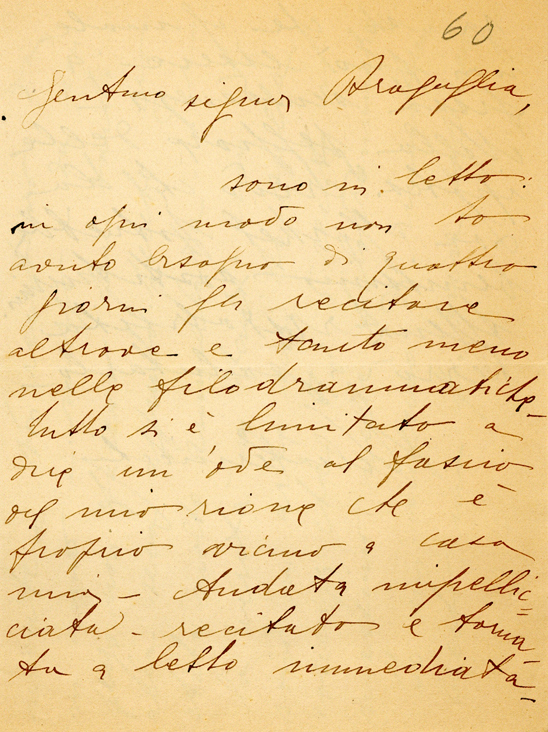 60
Gentmo signor Bragaglia,
sono in letto:
in ogni modo non ho
avuto bisogno di quattro
giorni per recitare
altrove e tanto meno
nelle filodrammatiche -
tutto si è limitato a
dire un'ode al fascio
del mio rione che è
proprio vicino a casa
mia - Andata impellic=
ciata - recitato e torna=
ta a letto immediata=